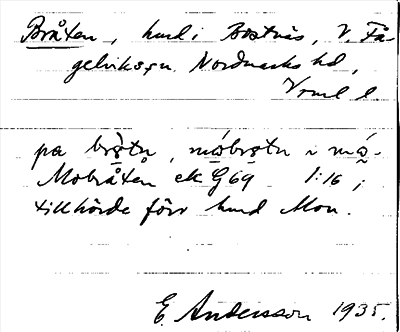 Bråten, hmd i Bostnäs, V. Få-
gelviks sn. Nordmarks hd,
Vrml l.
pa brǫ̀tn, mǫ́brǫtn i mǫ́-
Mobråten ek G69 1:16;
tillhörde förr hmd Mon.
E. Andersson 1935.